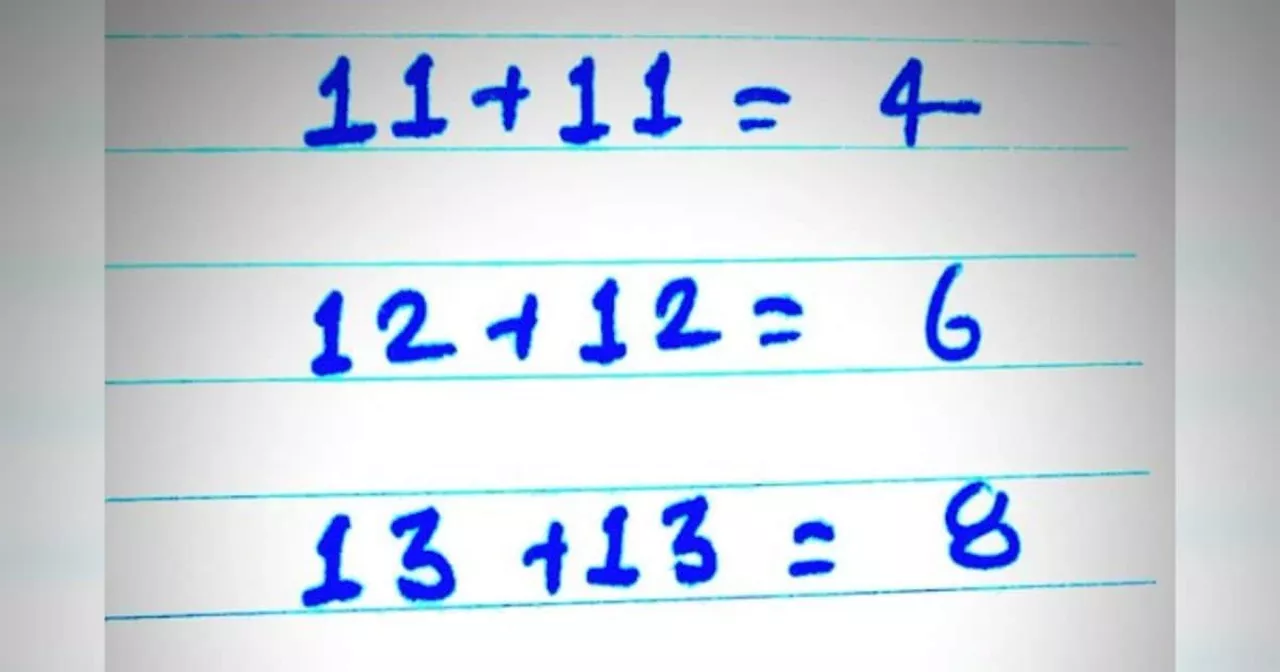 11+11 = 4
12+12 = 6
13+13 = 8